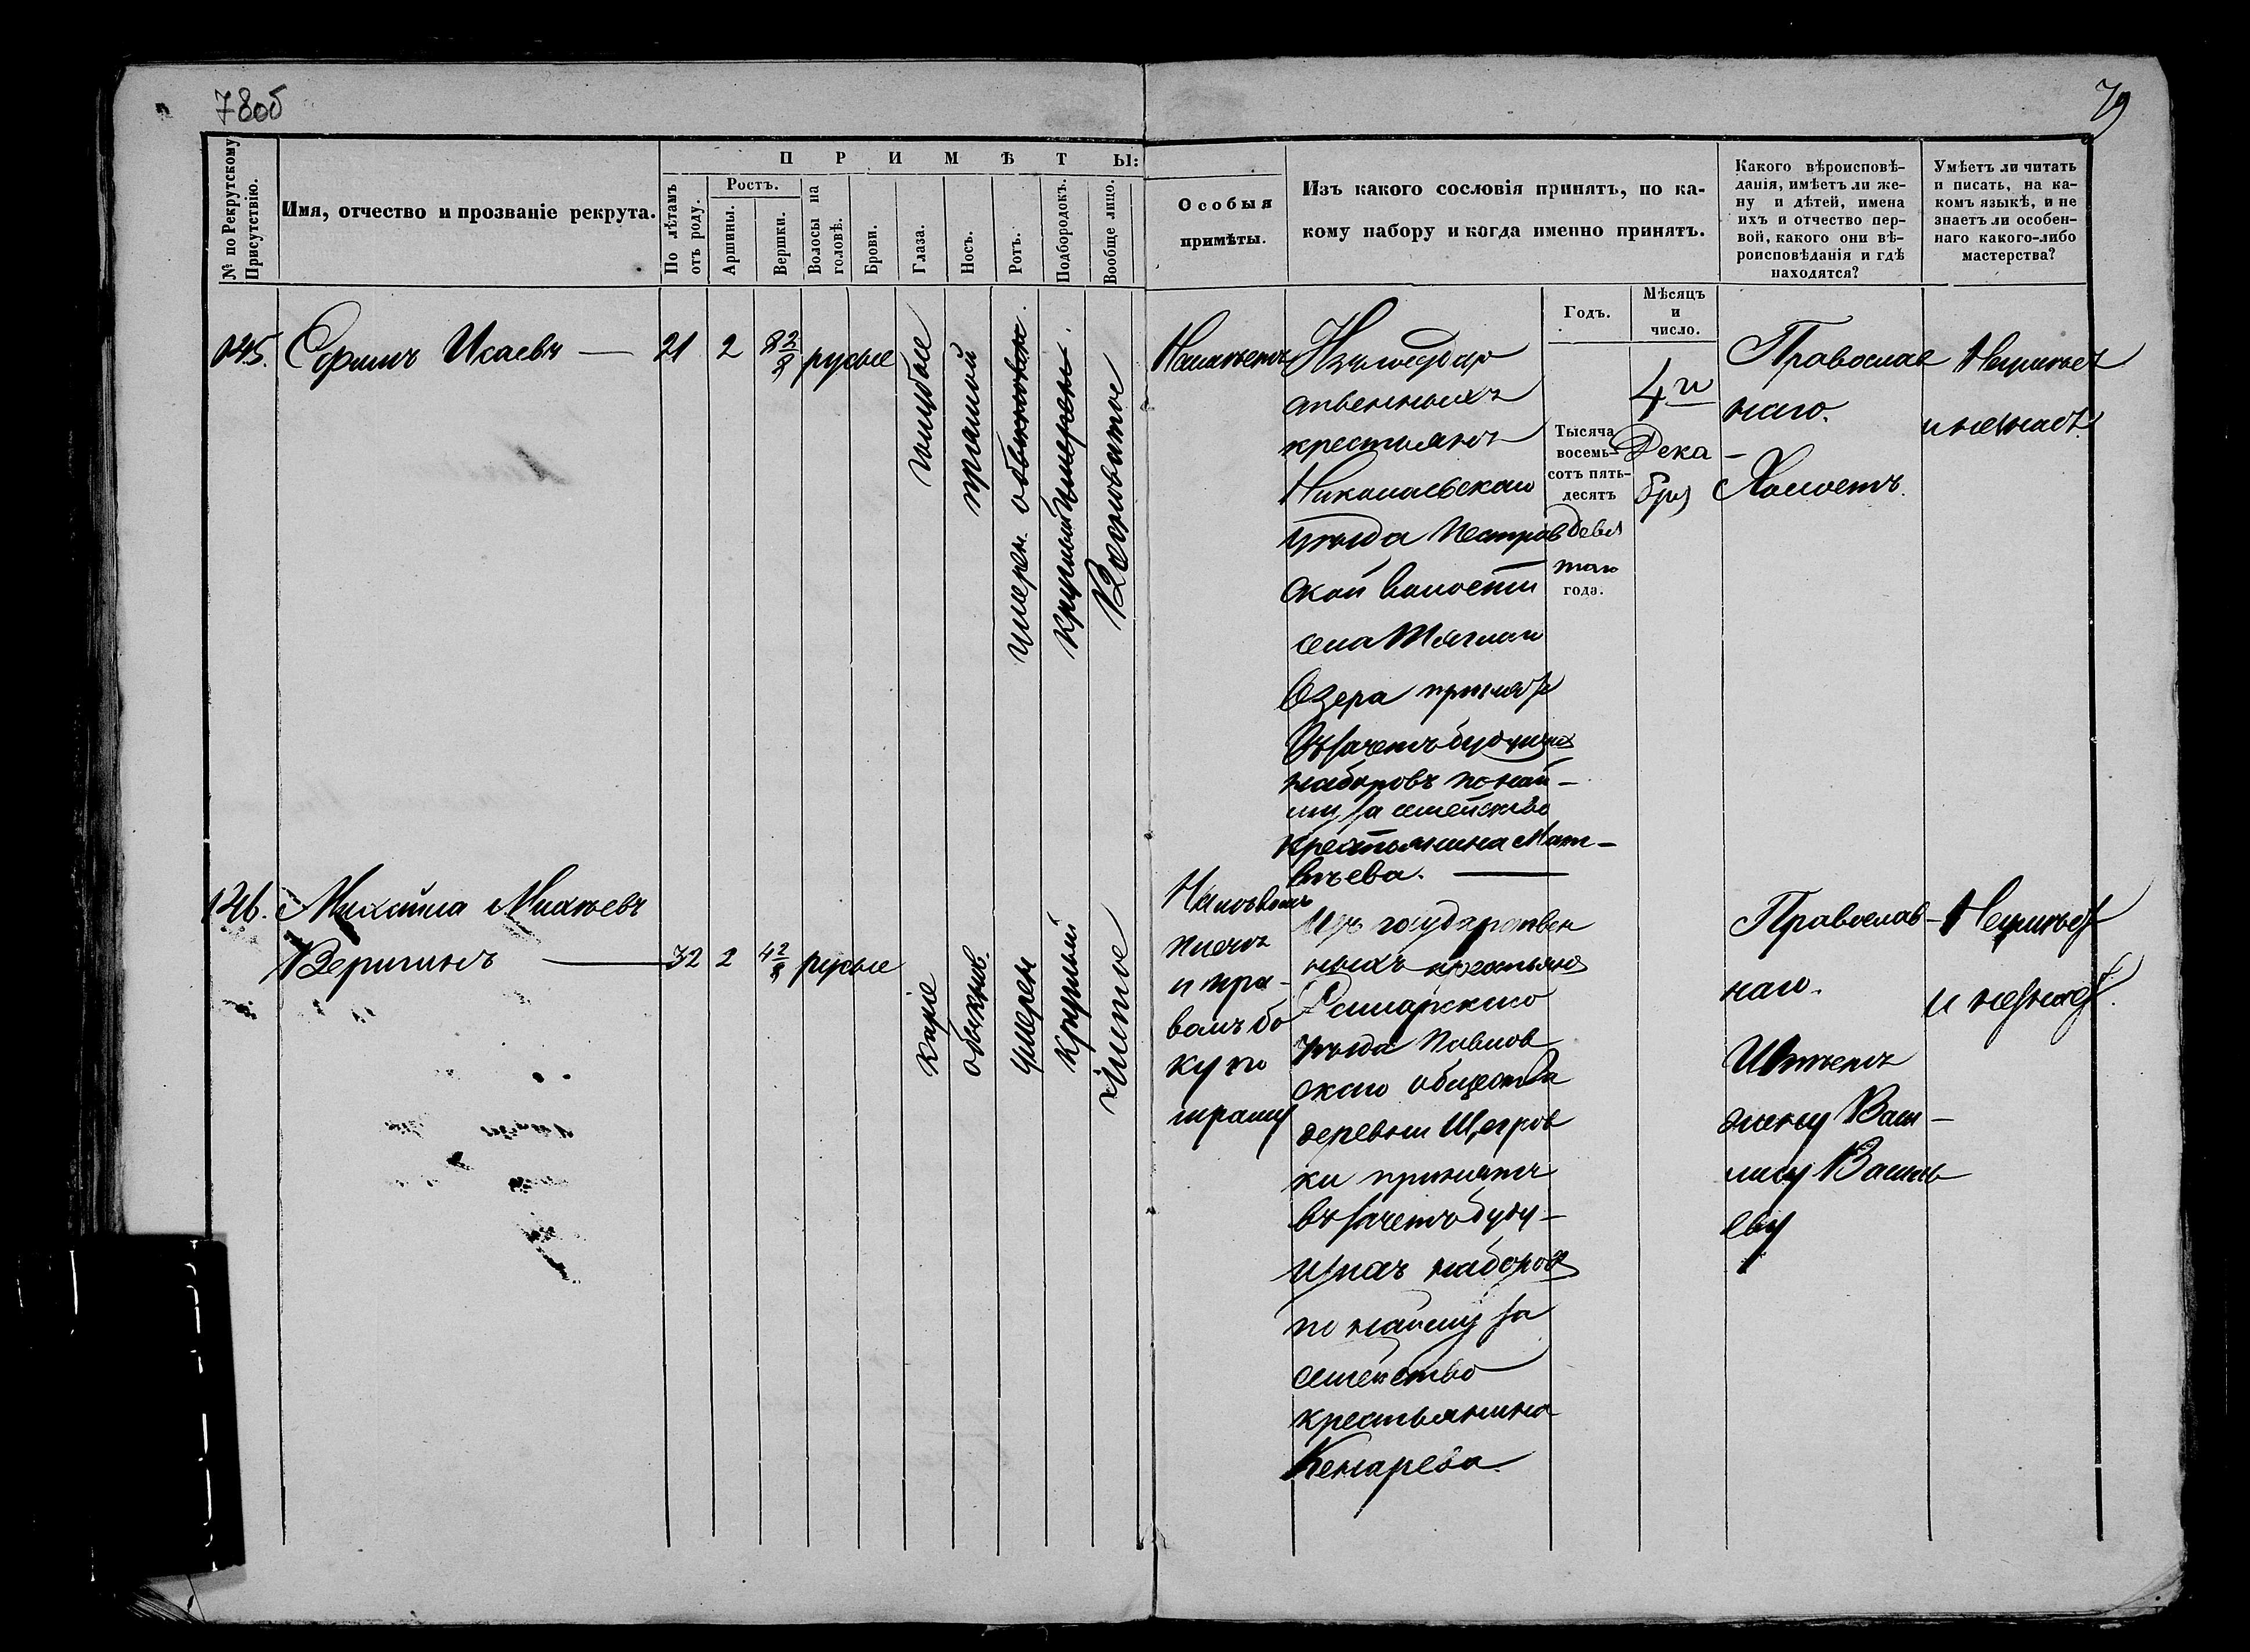 78об
79
№ по Рекрутскому Присутствію.
Имя, отчество и прозваніе рекрута.
ПРИМѢТЫ:
По лѣтамъ отъ роду.
Ростъ.
Аршины.
Вершки.
Волосы на головѣ.
Брови.
Глаза.
Носъ.
Ротъ.
Подбородокъ.
Вообще лицо.
Особыя
примѣты.
Изъ какого сословія принятъ, по ка-
кому набору и когда именно принятъ.
Какого вѣроисповѣ-
данія, имѣетъ ли же-
ну и дѣтей, имена
ихъ и отчество пер-
вой, какого они вѣ-
роисповѣданія и гдѣ
находятся?
Умѣетъ ли читать
и писать, на ка-
комъ языкѣ, и не
знаетъ ли особен-
наго какого-либо
мастерства?
Годъ.
Мѣсяцъ
и
число.
Ефимъ Исаевъ — 21 2 русые
голубые
прямой
умерен. обыкновен.
круглый умерен.
Весноватое
Неимѣетъ
Изъ государ
ственныхъ
крестьянъ
Николаевскаго
уѣзда Пестрав
ской волости
села Тяглаго
Озера принятъ
Въ зачетъ будущихъ
наборовъ по най-
му за семейство
крестьянина Мат-
вѣева. —
Тысяча
восемь-
сотъ пять-
десятъ
девя
таго
года.
4го
Дека-
бря
Православ
наго.
Холостъ.
Неумѣетъ
и незнаетъ.
146. Михаила Михѣевъ
Веригинъ — 32 2 4 2/8 русые
каріе
обыкнов.
умерен
круглый
чистое
На лѣвомъ
плечѣ
и пра-
вомъ бо
ку по
шраму
Изъ государствен
ныхъ крестьянъ
уѣзда Павлов
скаго общества
деревни
ки принятъ
въ зачетъ буду-
щихъ наборовъ
по найму за
семейство
крестьянина
Православ-
наго.
Имѣетъ
жену Васи-
лису Василь
еву
Неумѣетъ
и незнаетъ.